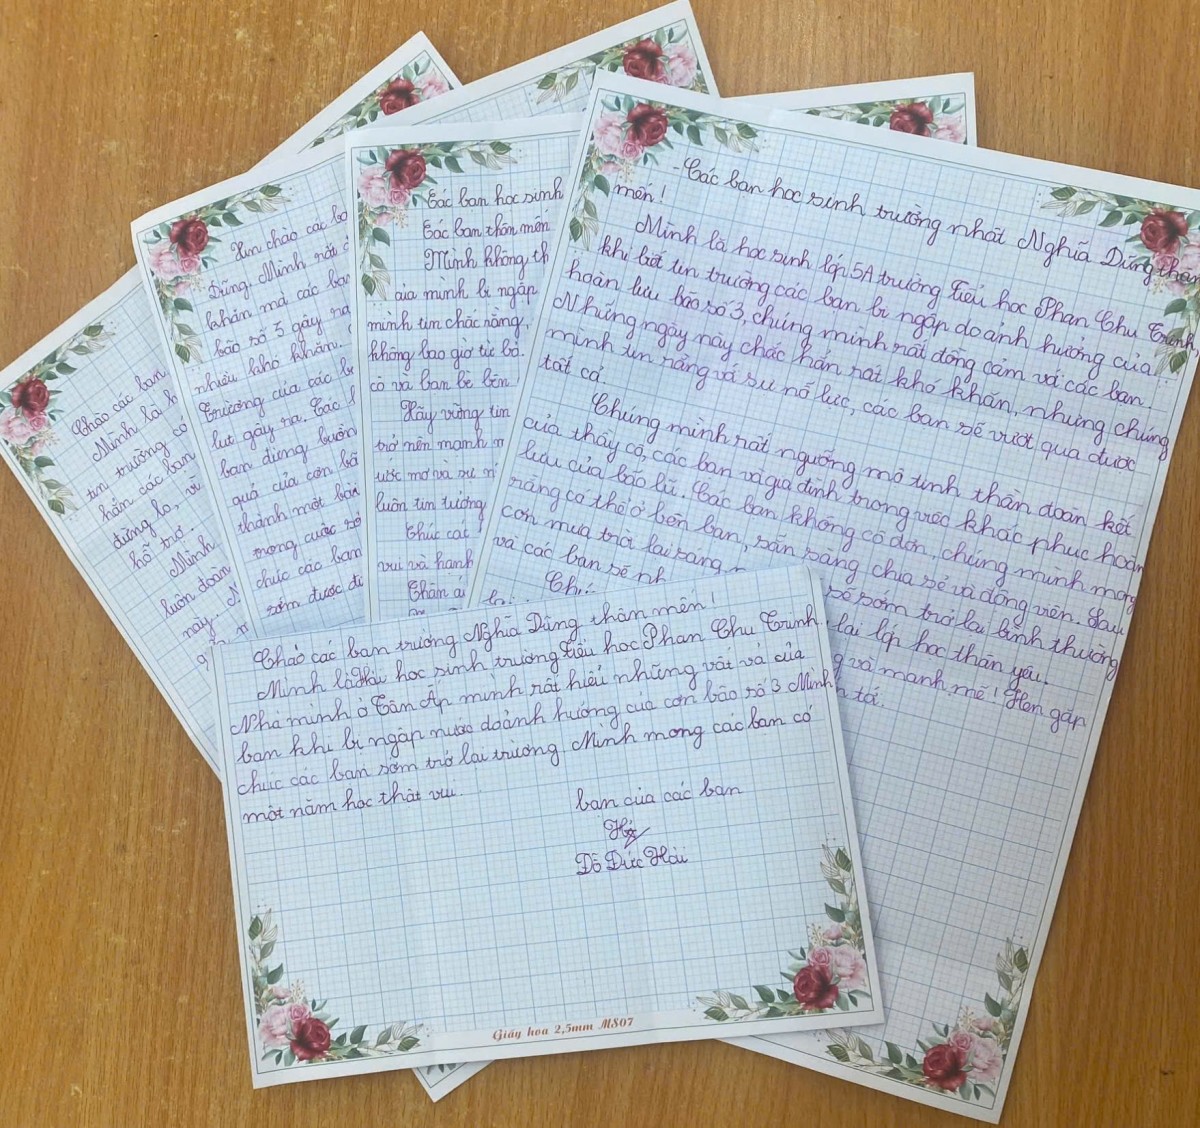 Chào các bạn
Mình là h
tin trường cá
hẳn các bạn
đừng lo, vì
hỗ trợ.
Mình
luôn đoàn
này. N
Xin chào các bạ
Dũng. Mình rất
khăn mà các bạn
bão số 3 gây ra
nhiều khó khăn.
Trương của các b
lụt gây ra. Các
bạn đừng buồn
quả của cơn bã
thành một bản
trong cuộc số
chúc các bạn
sớm được đi
Các bạn học sinh
Các bạn thân mến
Mình không th
của mình bị ngập
mình tin chắc rằng,
không bao giờ từ bỏ.
cô và bạn bè bên
Hãy vững tin
trở nên mạnh m
ước mơ và sự n
luôn tin tưởng
Chúc các
vui và hạnh
Thân ái
- Các bạn học sinh trường nhất Nghĩa Dũng thân
mến!
Mình là học sinh lớp 5A trường Tiểu học Phan Chu Trinh
khi biết tin trường các bạn bị ngập do ảnh hưởng của
hoàn lưu bão số 3, chúng mình rất đồng cảm với các bạn.
Những ngày này chắc hẳn rất khó khăn, nhưng chúng
mình tin rằng với sự nỗ lực, các bạn sẽ vượt qua được
tất cả.
Chúng mình rất ngưỡng mộ tinh thần đoàn kết
của thầy cô, các bạn và gia đình trong việc khắc phục hoàn
lưu của bão lũ. Các bạn không cô đơn, chúng mình mong
rằng có thể ở bên bạn, sẵn sàng chia sẻ và động viên. Sau
cơn mưa trời lại sáng, sẽ sớm trở lại bình thường
và các bạn sẽ nh lại lớp học thân yêu.
Chú và mạnh mẽ! Hẹn gặp
tớ.
Chào các bạn trường Nghĩa Dũng thân mến!
Mình là Hải học sinh trường Tiểu học Phan Chu Trinh.
Nhà mình ở Tân Ấp mình rất hiểu những vất vả của
bạn khi bị ngập nước do ảnh hưởng của cơn bão số 3 Mình
chúc các bạn sớm trở lại trường Mình mong các bạn có
một năm học thật vui.
bạn của các bạn
Hải
Đỗ Đức Hải
Giấy hoa 2,5mm MS07